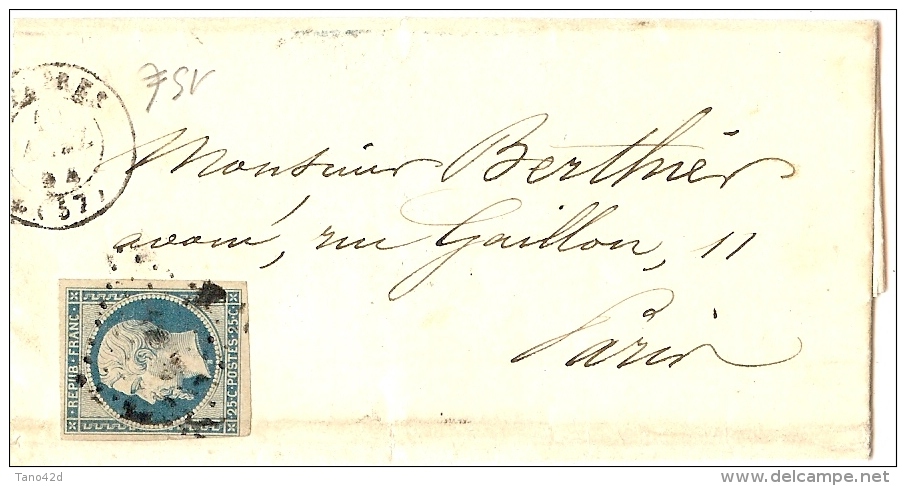 75r
Monsieur Berthier
avoué, rue Gaillon, 11
Paris
(57)
REPUB · FRANC.
25 · C · POSTES · 25 · C
Tano42d
www.delcampe.net